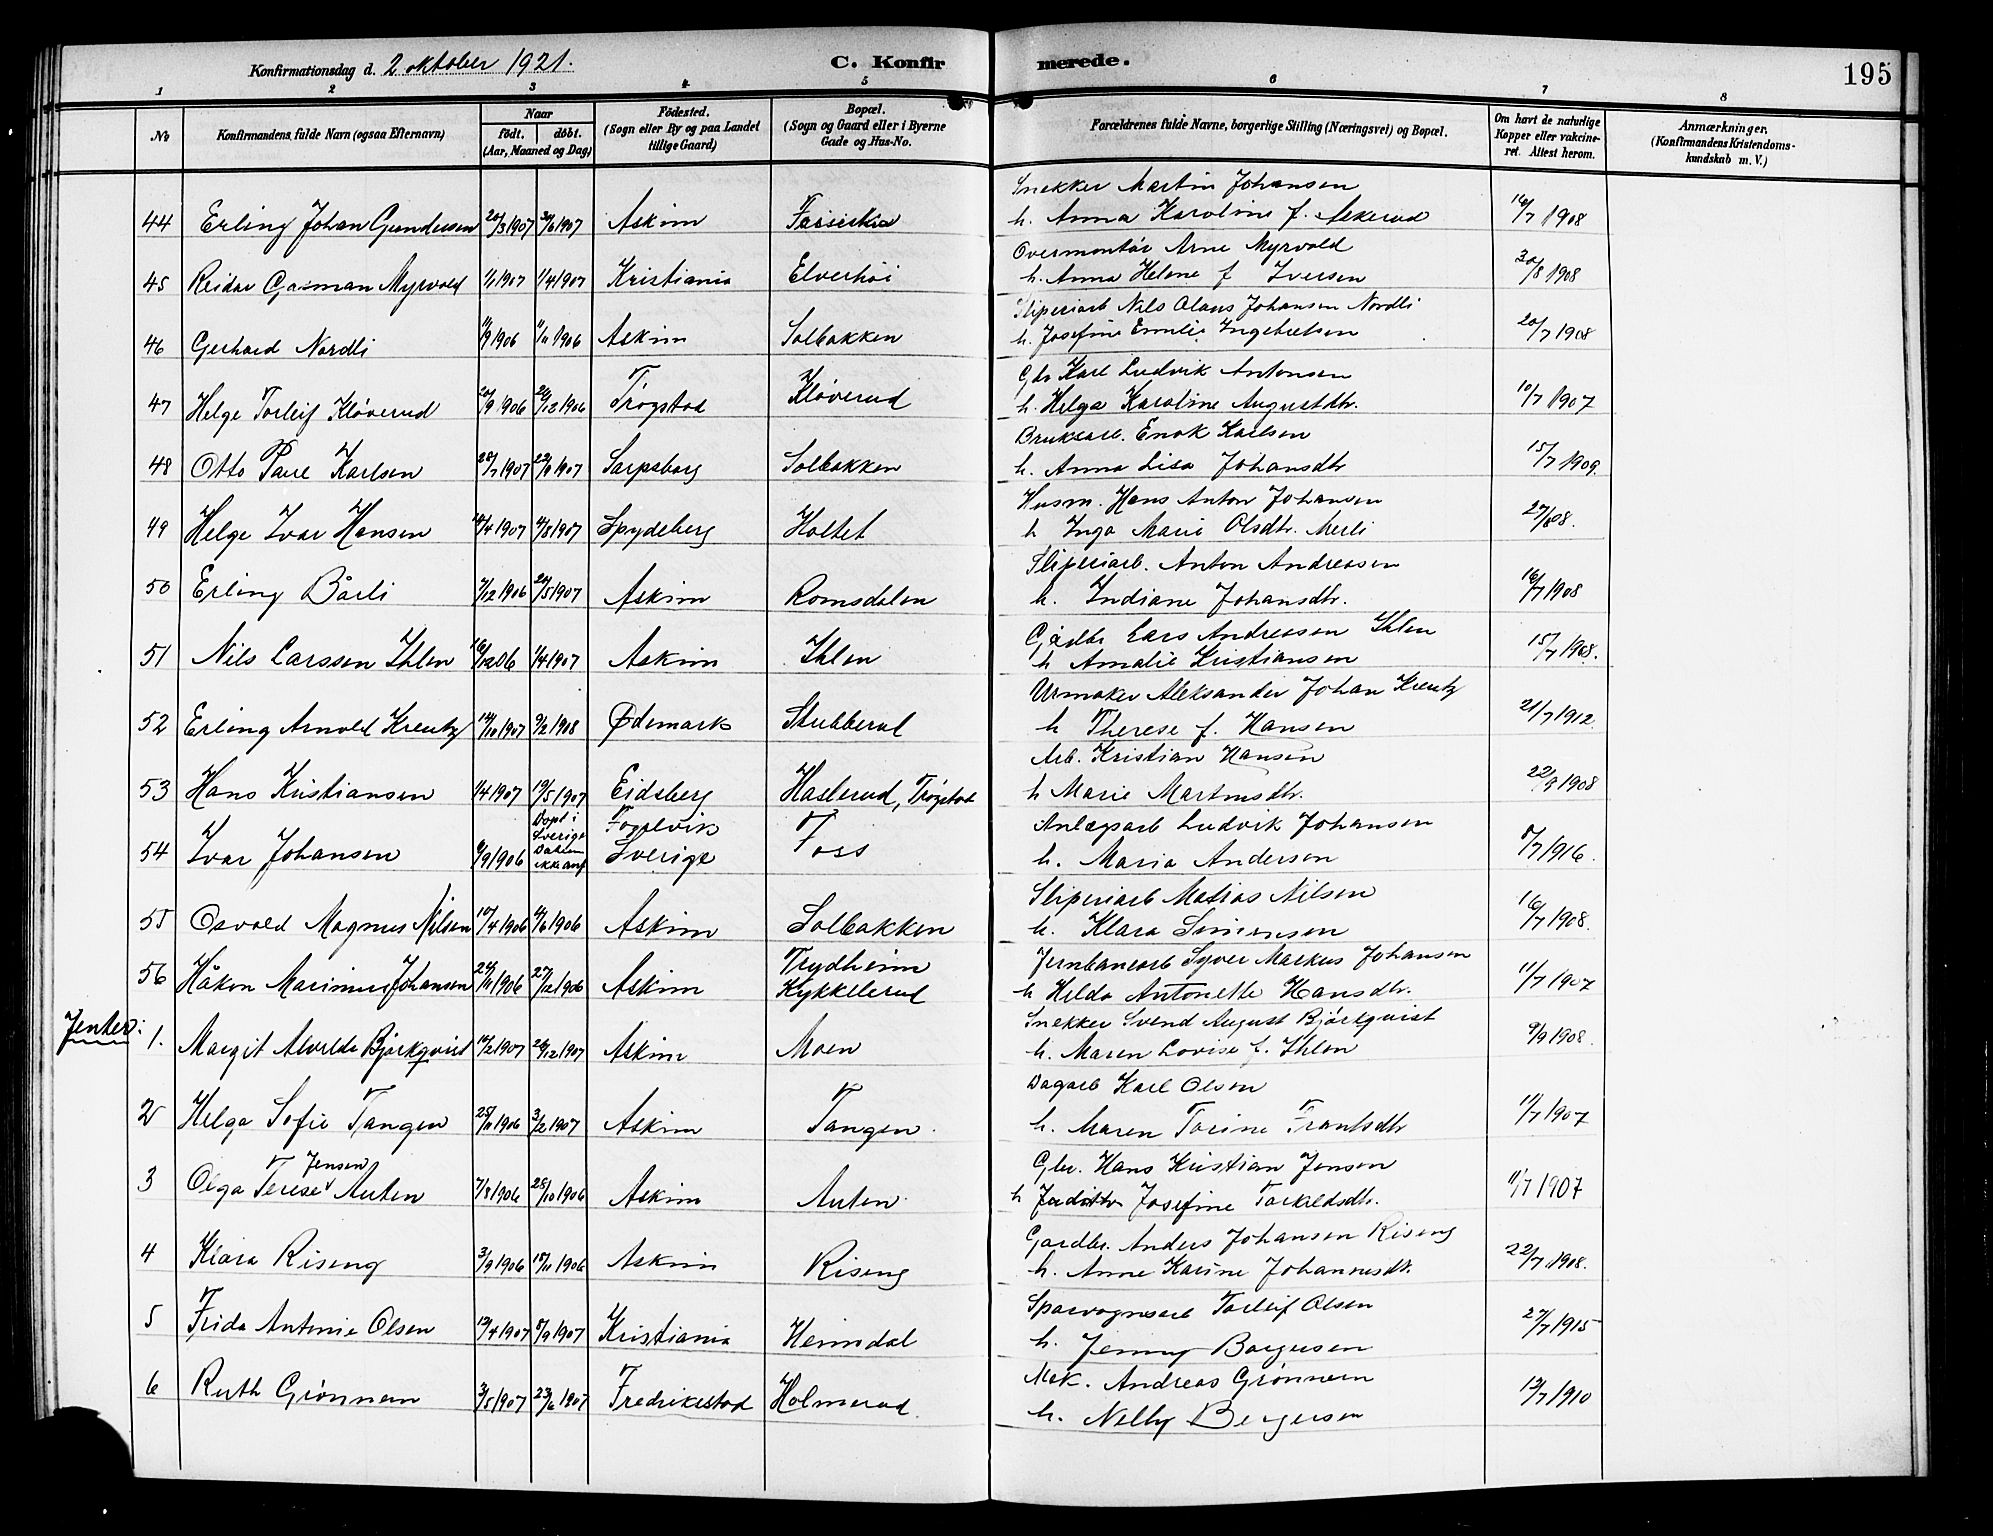 Konfirmationsdag d. 2 oktober 1921.
C. Konfir merede.
195
1 2 3 4 5 6 7 8
No
Konfirmandens fulde Navn (ogsaa Efternavn)
Naar
født. døbt.
(Aar, Maaned og Dag)
Fødested.
(Sogn eller By og paa Landet
tillige Gaard)
Bopæl.
(Sogn og Gaard eller i Byerne
Gade og Hus-No.
Forældrenes fulde Navne, borgerlige Stilling (Næringsvei) og Bopæl.
Om havt de naturlige
Kopper eller vakcine-
ret. Attest herom.
Anmærkninger.
(Konfirmandens Kristendoms-
kundskab m. V.)
Snekker Martin Johansen
44 Erling Johan Gundersen 20/3 1907 30/6 1907 Askim h. Anna Karoline f. Askerud 16/7 1908
Overmontør Arne Myrvold
45 Reidar Gasman Myrvold 1/1 1907 1/4 1907 Kristiania Elverhøi h. Anna Helene f Iversen 30/8 1908
Sliperiarb Nils Olaus Johansen Nordli
46 Gerhard Nordli 11/9 1906 11/11 1906 Askim Solbakken h. Josefine Emilie Ingebretsen 20/7 1908
Gbr Karl Ludvik Antonsen
47 Helge Torleif Kløverud 20/9 1906 26/12 1906 Trøgstad Kløverud h. Helga Karoline Augustdtr. 10/7 1907
Bruksarb. Enok Karlsen
48 Otto Paul Karlsen 1907 1907 Sarpsborg Solbakken h. Anna Lisa Johansdtr 15/7 1909.
Husm. Hans Anton Johansen
49 Helge Ivar Hansen 1907 4/8 1907 Spydeberg Holtet h Inga Marie Olsdtr. Merli 27/8 08.
Sliperiarb. Anton Andreasen
50 Erling Bårli 7/12 1906 20/5 1907 Askim Romsdalen h. Indiane Johansdtr. 16/7 1908
Gårdbr Lars Andreasen Ihlen
51 Nils Larssen Ihlen 16/12 06 1/4 1907 Askim Ihlen h Amalie Kristiansen 15/7 1908.
Urmaker Aleksander Johan Kreutz
52 Erling Arnold Kreutz 14/10 1907 9/2 1908 Ødemark Stubberud h Therese f. Hansen 21/7 1912.
Arb. Kristian Hansen
53 Hans Kristiansen 1/4 1907 19/5 1907 Eidsberg Haslerud, Trøgstad h Marie Martinsdtr. 22/9 1908
Døpt i
Sverige
Datum
ikke anf
Anlægsarb Ludvik Johansen
54 Ivar Johansen 6/9 1906 Sverige Foss h. Maria Anderson 8/7 1916.
Sliperiarb Matias Nilsen
55 Osvald Magnus Nilsen 10/4 1906 4/6 1906 Askim Solbakken h. Klara Simensen 16/7 1908.
Jernbanearb Syver Markus Johansen
56 Håkon Marinius Johansen 24/11 1906 27/12 1906 Askim Trydheim
Kykkelsrud h Hilda Antonette Hansdtr. 11/7 1907
Jenter:
Snekker Svend August Bjørkqvist
1. Margit Alvilde Bjørkqvist 1907 26/12 1907 Askim Moen h. Maren Lovise f. Ihlen 9/9 1908.
Dagarb Karl Olsen
2 Helga Sofie Tangen 25/11 1906 3/2 1907 Askim Tangen. h. Maren Torine Frantsdtr 11/7 1907
Jensen
Gbr. Hans Kristian Jensen
3 Olga Terese Auten 7/8 1906 28/10 1906 Askim Auten h Judithe Josefine Torkildsdtr. 11/7 1907
Gardbr. Anders Johansen Riseng
4 Klara Riseng 3/9 1906 18/11 1906 Askim Riseng h. Anne Karine Johannesdtr. 22/7 1908.
Sporvognsarb Torleif Olsen
5 Frida Antonie Olsen 12/4 1907 8/9 1907 Kristiania Heimdal h. Jenny Borgersen 27/7 1915
Mek. Andreas Grønnern
6 Ruth Grønnern 3/5 1907 23/6 1907 Fredrikstad Holmerud h. Nelly Bergersen 12/7 1910